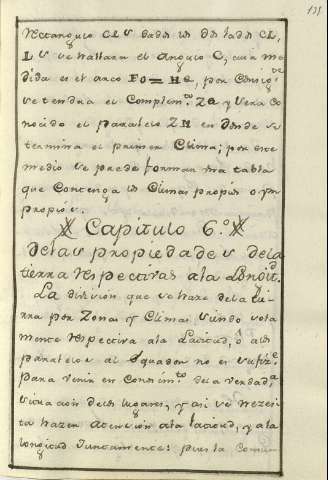 131
rectangulo CLS dados los dos lados CL,
LS se hallara el angulo C, cuia me
dida es el arco FO=HC, por Consigte
se tendra el Complemto Za y sera Co
nocido el paralelo ZM en donde se
termina el primer Clima; por este
medio se puede formar una tabla
que Contenga los Climas propios o im
propios.
Capitulo 6.º
delas propiedades dela
tierra respectivas ala Longitd.
La division que se haze dela tie-
rra por Zonas y Climas siendo sola
mente respectiva ala Latitud, o alos
paralelos al Equador no es sufizte
para venir en Conocimto dela verdada
situacion delos lugares, y asi se nezesi
ta hazer atencion ala latitud, y ala
longitud Juntamente: pues la Comun